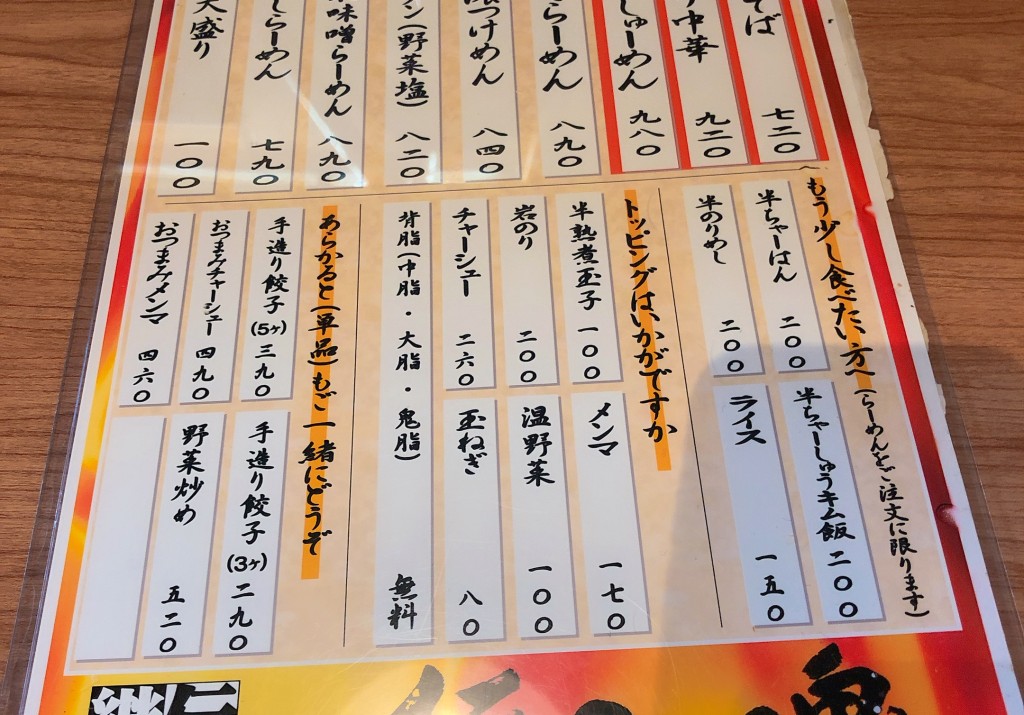 そば 七二〇
中華 九二〇
しゅーめん 九八〇
らーめん 八九〇
つけめん 八四〇
メン(野菜塩) 八二〇
味噌らーめん 八九〇
しらーめん 七九〇
大盛り 一〇〇
もう少し食べたい方へ(らーめんをご注文に限ります)
半ちゃーはん 二〇〇
半のりめし 二〇〇
半ちゃーしゅうキム飯 二〇〇
ライス 一五〇
トッピングはいかがですか
半熟煮玉子 一〇〇
岩のり 二〇〇
チャーシュー 二六〇
メンマ 一七〇
温野菜 一〇〇
玉ねぎ 八〇
背脂(中脂・大脂・鬼脂) 無料
あらかると(単品)もご一緒にどうぞ
手造り餃子(5ヶ) 三九〇
おつまみチャーシュー 四九〇
おつまみメンマ 四六〇
手造り餃子(3ヶ) 二九〇
野菜炒め 五二〇